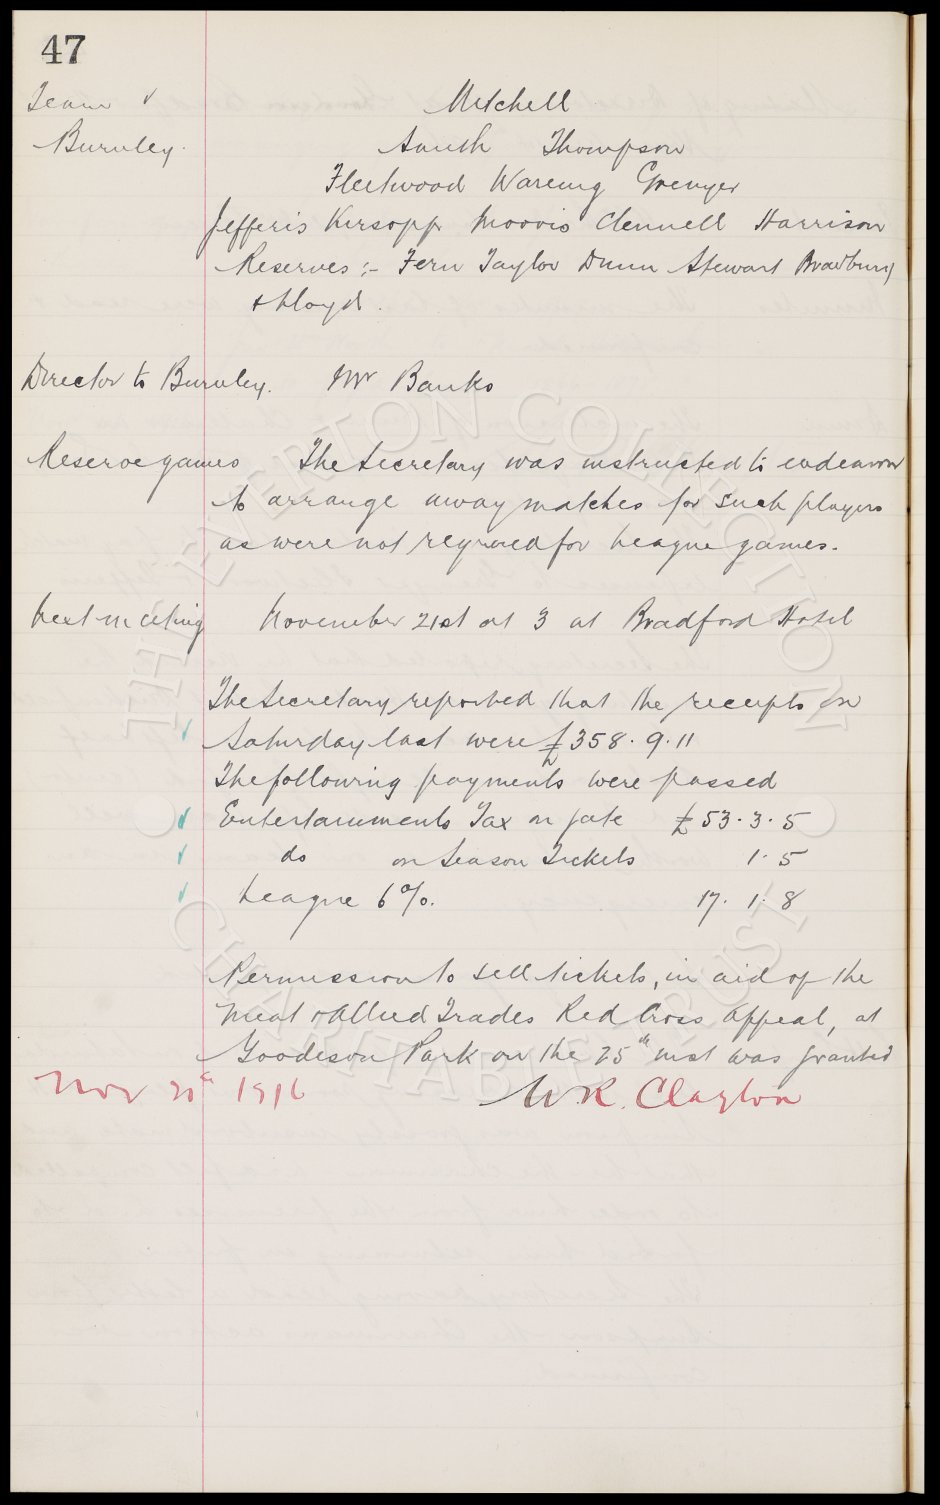 47
Team v Mitchell
Burnley. Smith Thompson
Fleetwood Wareing Grenyer
Jefferis Kirsopp Morris Clennell Harrison
Reserves :- Fern Taylor Dunn Stewart Bradbury
& Lloyd.
Director to Burnley. Mr Banks
Reserve games The Secretary was instructed to endeavour
to arrange away matches for such players
as were not required for League games.
Next meeting November 21st at 3 at Bradford Hotel
The Secretary reported that the receipts on
Saturday last were £358.9.11
The following payments were passed
Entertainments Tax on gate £53.3.5
do on Season Tickets 1.5
League 6%. 17.1.8
Permission to sell tickets, in aid of the
Meat & Allied Trades Red Cross Appeal, at
Goodison Park on the 25th inst was granted
Nov 1916 W.R. Clayton
THE EVERTON COLLECTION
CHARITABLE TRUST